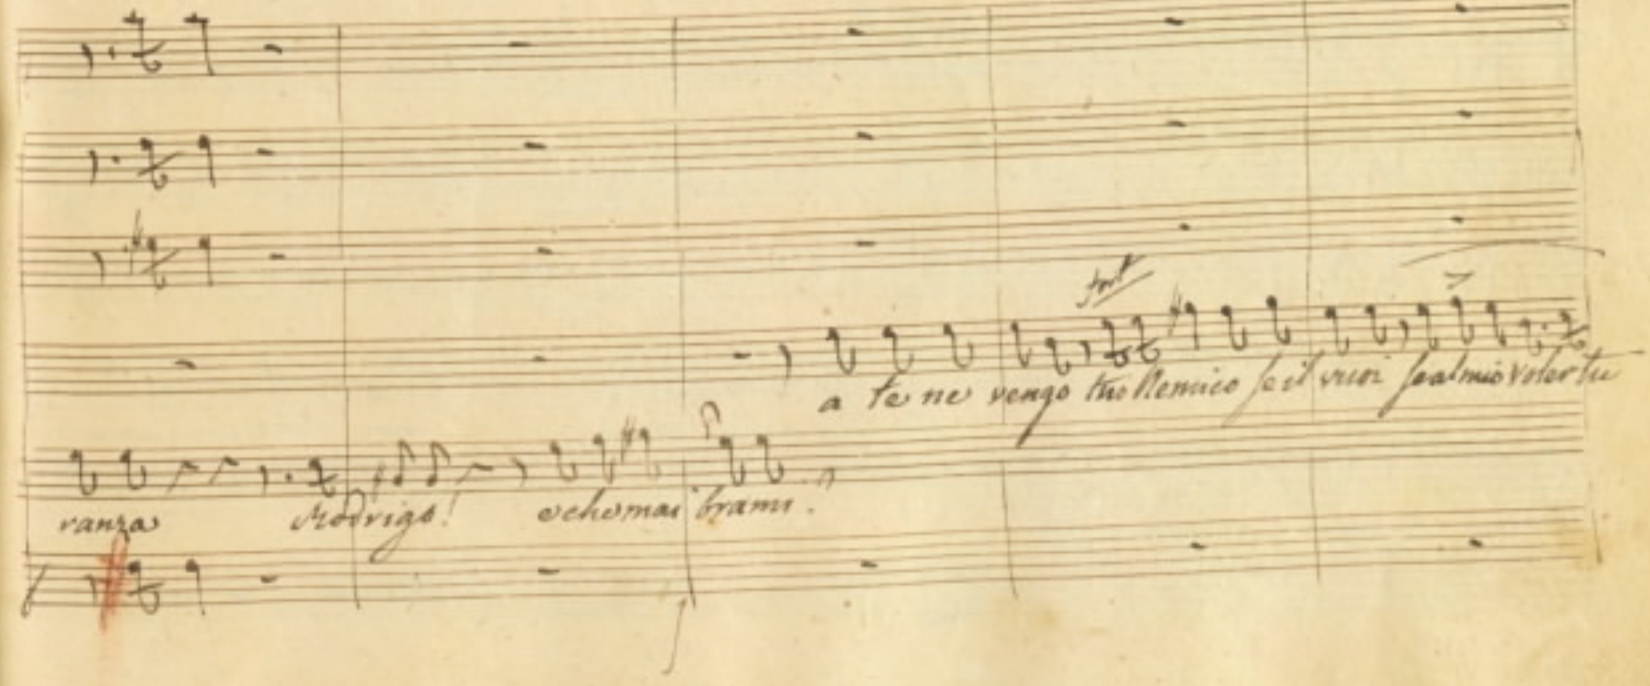 fort
a te ne vengo tuo Nemico se il vuoi se al mio voler tu
ranza Rodrigo! e che mai brami.